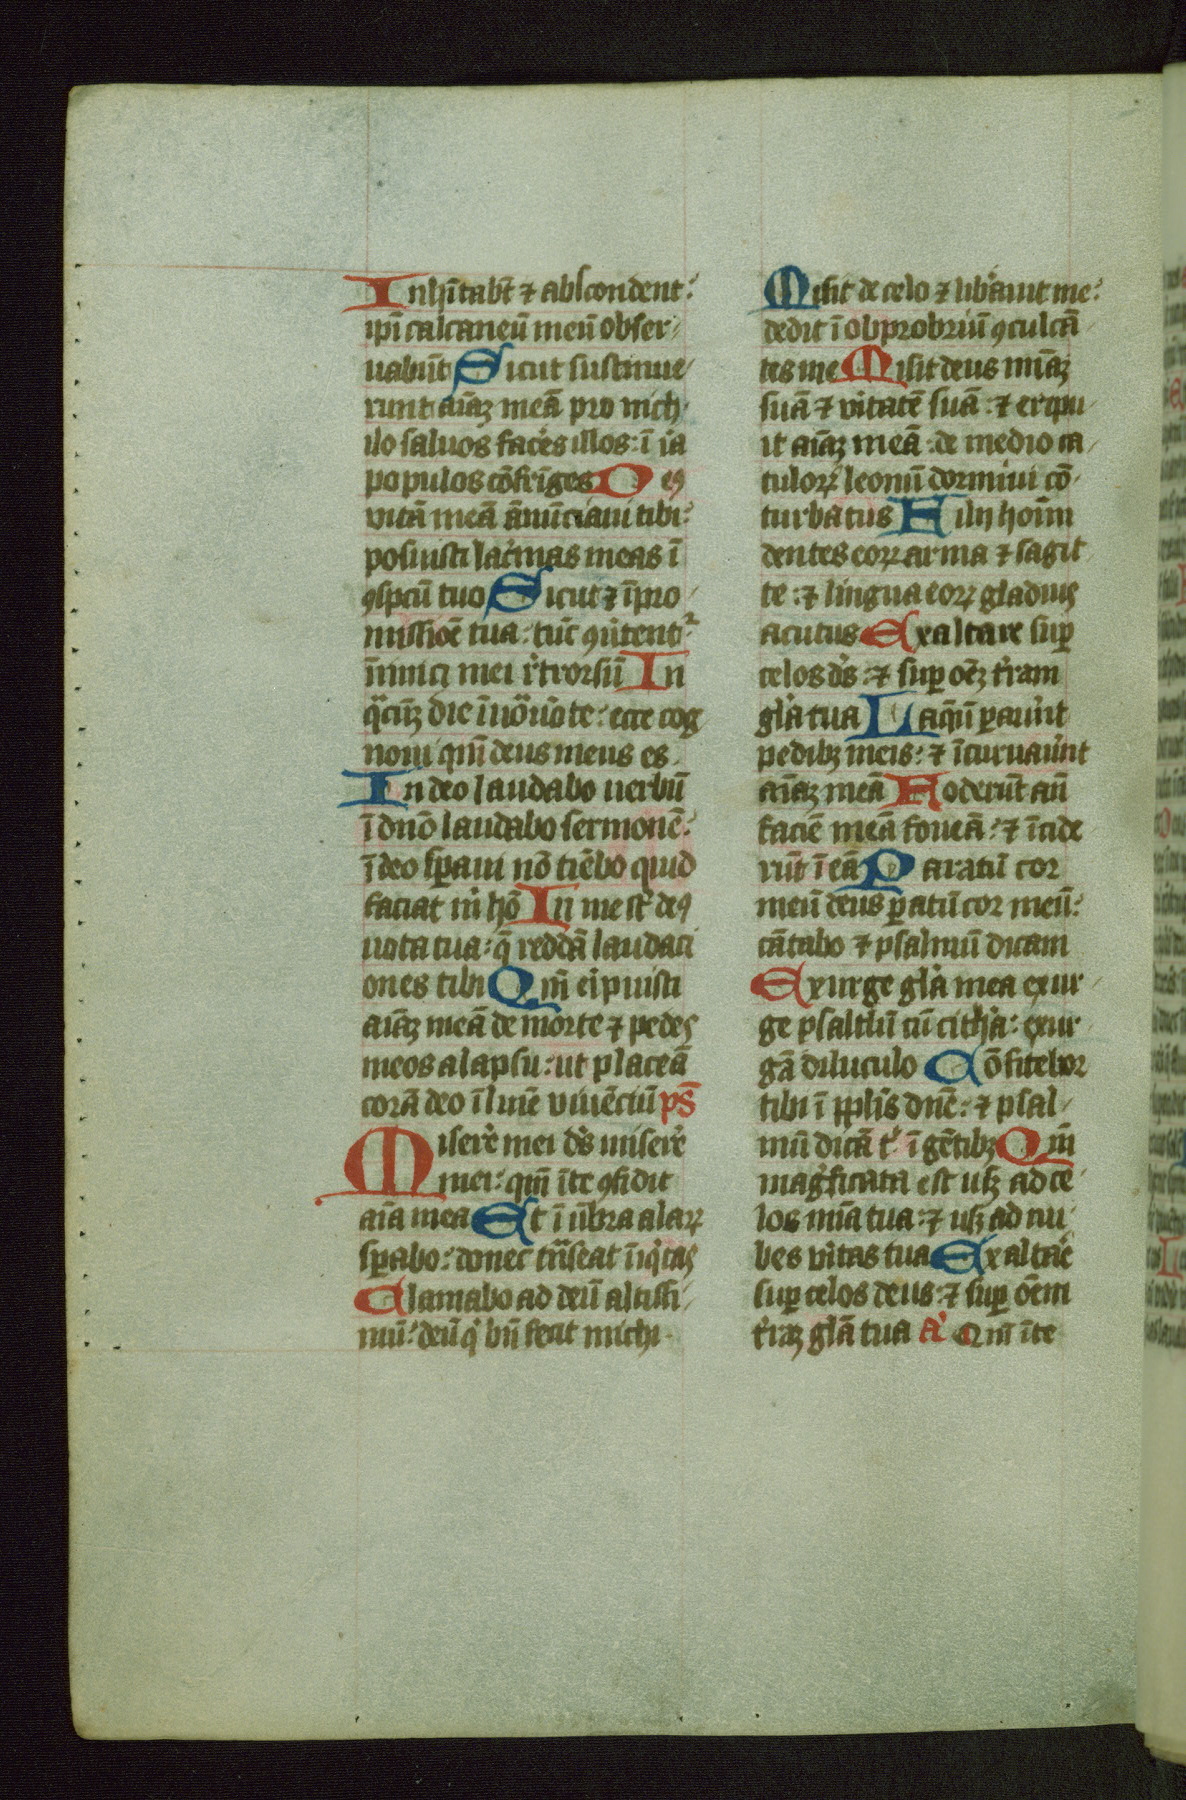 Inhĩtabt̃ ⁊ abscondent:
ip̃i calcaneũ meũ obser
uabũt Sicut sustinue
runt aĩaꝫ meã pro nich
ilo saluos facies illos: ĩ ira
populos cõfrĩges Deꝰ
vitã meã ãnũciaui tibi:
posuisti lac̾mas meas ĩ
ꝯspcũ tuo Sicut ⁊ ĩpro
missiõe tua: tũc ꝯũtentᷣ
ĩimici mei r̾trorsũ In
q̃cũꝫ die ĩuõcau̾o te: ecce cog
noui qm̃ deus meus es
In deo laudabo uerbũ
ĩ dnõ laudabo sermonẽ:
ĩ deo sꝑaui nõ tĩebo quid
faciat m̾ hõ In me sꝉ deꝰ
uota tua: q̃ reddã laudaci
ones tibi Qm̃ eripuisti
aĩaꝫ meã de morte ⁊ pedes
meos a lapsu: ut placeã
corã deo ĩ lumĩe viuẽciũ pš
Miserẽ mei dš miserẽ
mei: qm̃ ĩ te ꝯfidit
aĩa mea Et ĩ ũbra alaꝝ
sꝑabo: donec trãseat ĩiq̾tas
Clamabo ad deũ altissi
mũ: deũ q̾ bñ fecit michi
Misit de celo ⁊ lib̾auit me:
dedit ĩ obprobriũ ꝯculcã
tes me Misit deus mĩaꝫ
suã ⁊ v̾itatẽ suã: ⁊ eripu
it aĩaꝫ meã: de medio ca
tuloꝝ leonũ dormiui cõ
turbatus Filij hoĩm
dentes eoꝝ arma ⁊ sagit
te: ⁊ lingua eoꝝ gladius
acutus Exaltare suꝑ
celos dš: ⁊ suꝑ oẽꝫ t̾ram
gl̾a tua Laqũ ꝑau̾ũt
pedibꝫ meis: ⁊ ĩcuruau̾ũt
aĩaꝫ meã Foderũt añ
faciẽ meã foueã: ⁊ ĩcide
rũt ĩ eã Paratũ cor
meũ deus ꝑatũ cor meũ:
cãtabo ⁊ psalmũ dicam
Exurge gl̾a mea exur
ge psaltĩũ cũ cith̾a: exur
gã diluculo Cõfitebor
tibi ĩ ppl̾is dnẽ: ⁊ psal
mũ dicã t̾ ĩ gẽtibꝫ Qm̃
mag̾ficata est usꝫ ad ce
los mĩa tua: ⁊ usꝫ ad nu
bes v̾itas tua Exaltarẽ
suꝑ celos deus: ⁊ suꝑ oẽm
t̾raꝫ gl̃a tua A̾ Qm̃ ĩ te